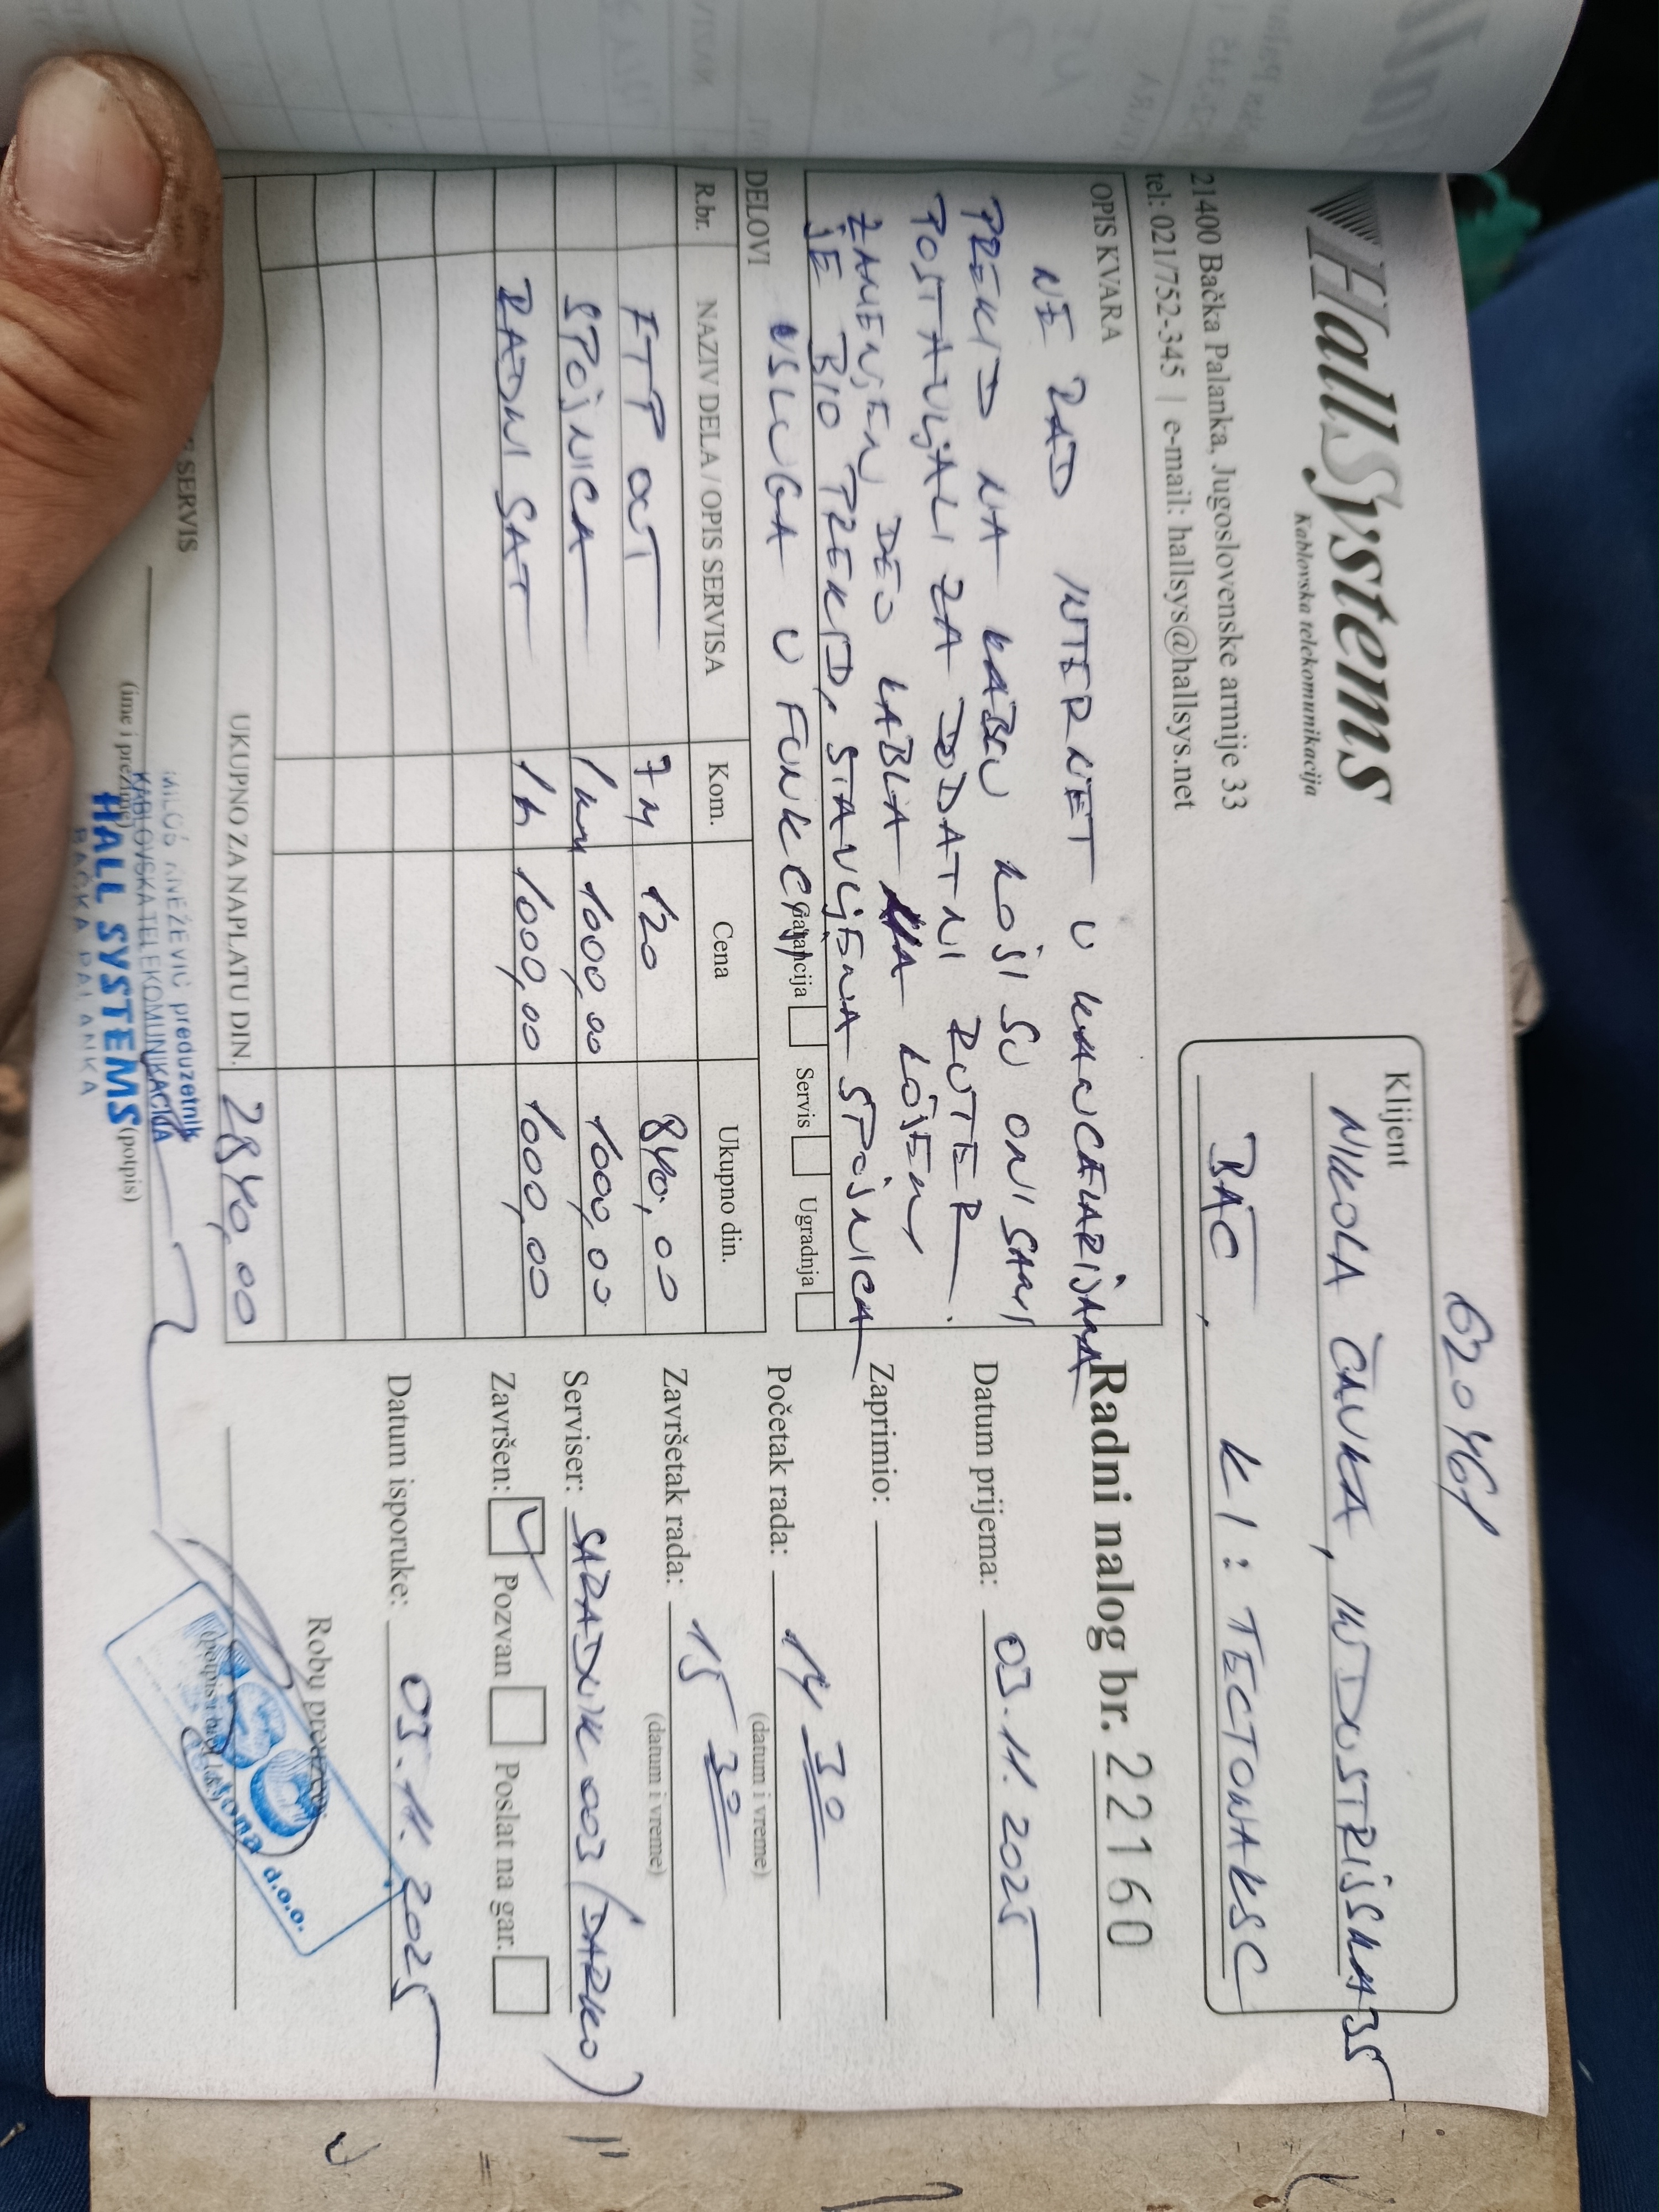 620461
HallSystems
Kablovska telekomunikacija
21400 Bačka Palanka, Jugoslovenske armije 33
tel: 021/752-345 | e-mail: hallsys@hallsys.net
Klijent
NIKOLA ČAVKA, INDUSTRIJSKA 35
BAČ, KI: TECTONAKSC
OPIS KVARA
NE RAD INTERNET U KANCELARIJAMA
PREKID NA KABLU KOJI SU ONI SAMI
POSTAVLJALI ZA DODATNI RUTER.
ZAMENJEN DEO KABLA NA KOJEM
JE BIO PREKID, STAVLJENA SPOJNICA
USLUGA U FUNKCIJI
Garancija Servis Ugradnja
DELOVI
R.br. NAZIV DELA / OPIS SERVISA Kom. Cena Ukupno din.
FTP OUT 7M 120 840,00
SPOJNICA 1 kom 1000,00 1000,00
RADNI SAT 1h 1000,00 1000,00
UKUPNO ZA NAPLATU DIN. 2840,00
Radni nalog br. 22160
Datum prijema: 03.11.2025
Zaprimio:
Početak rada: 14 30
(datum i vreme)
Završetak rada: 15 30
(datum i vreme)
Serviser: SARADNIK 003 (DARKO)
Završen: Pozvan Poslat na gar.
Datum isporuke: 03.11.2025
Robu preuzeo
d.o.o.
SERVIS
(ime i prezime)
(potpis)
MILOŠ KNEŽEVIĆ preduzetnik
KABLOVSKA TELEKOMUNIKACIJA
HALL SYSTEMS
BAČKA PALANKA